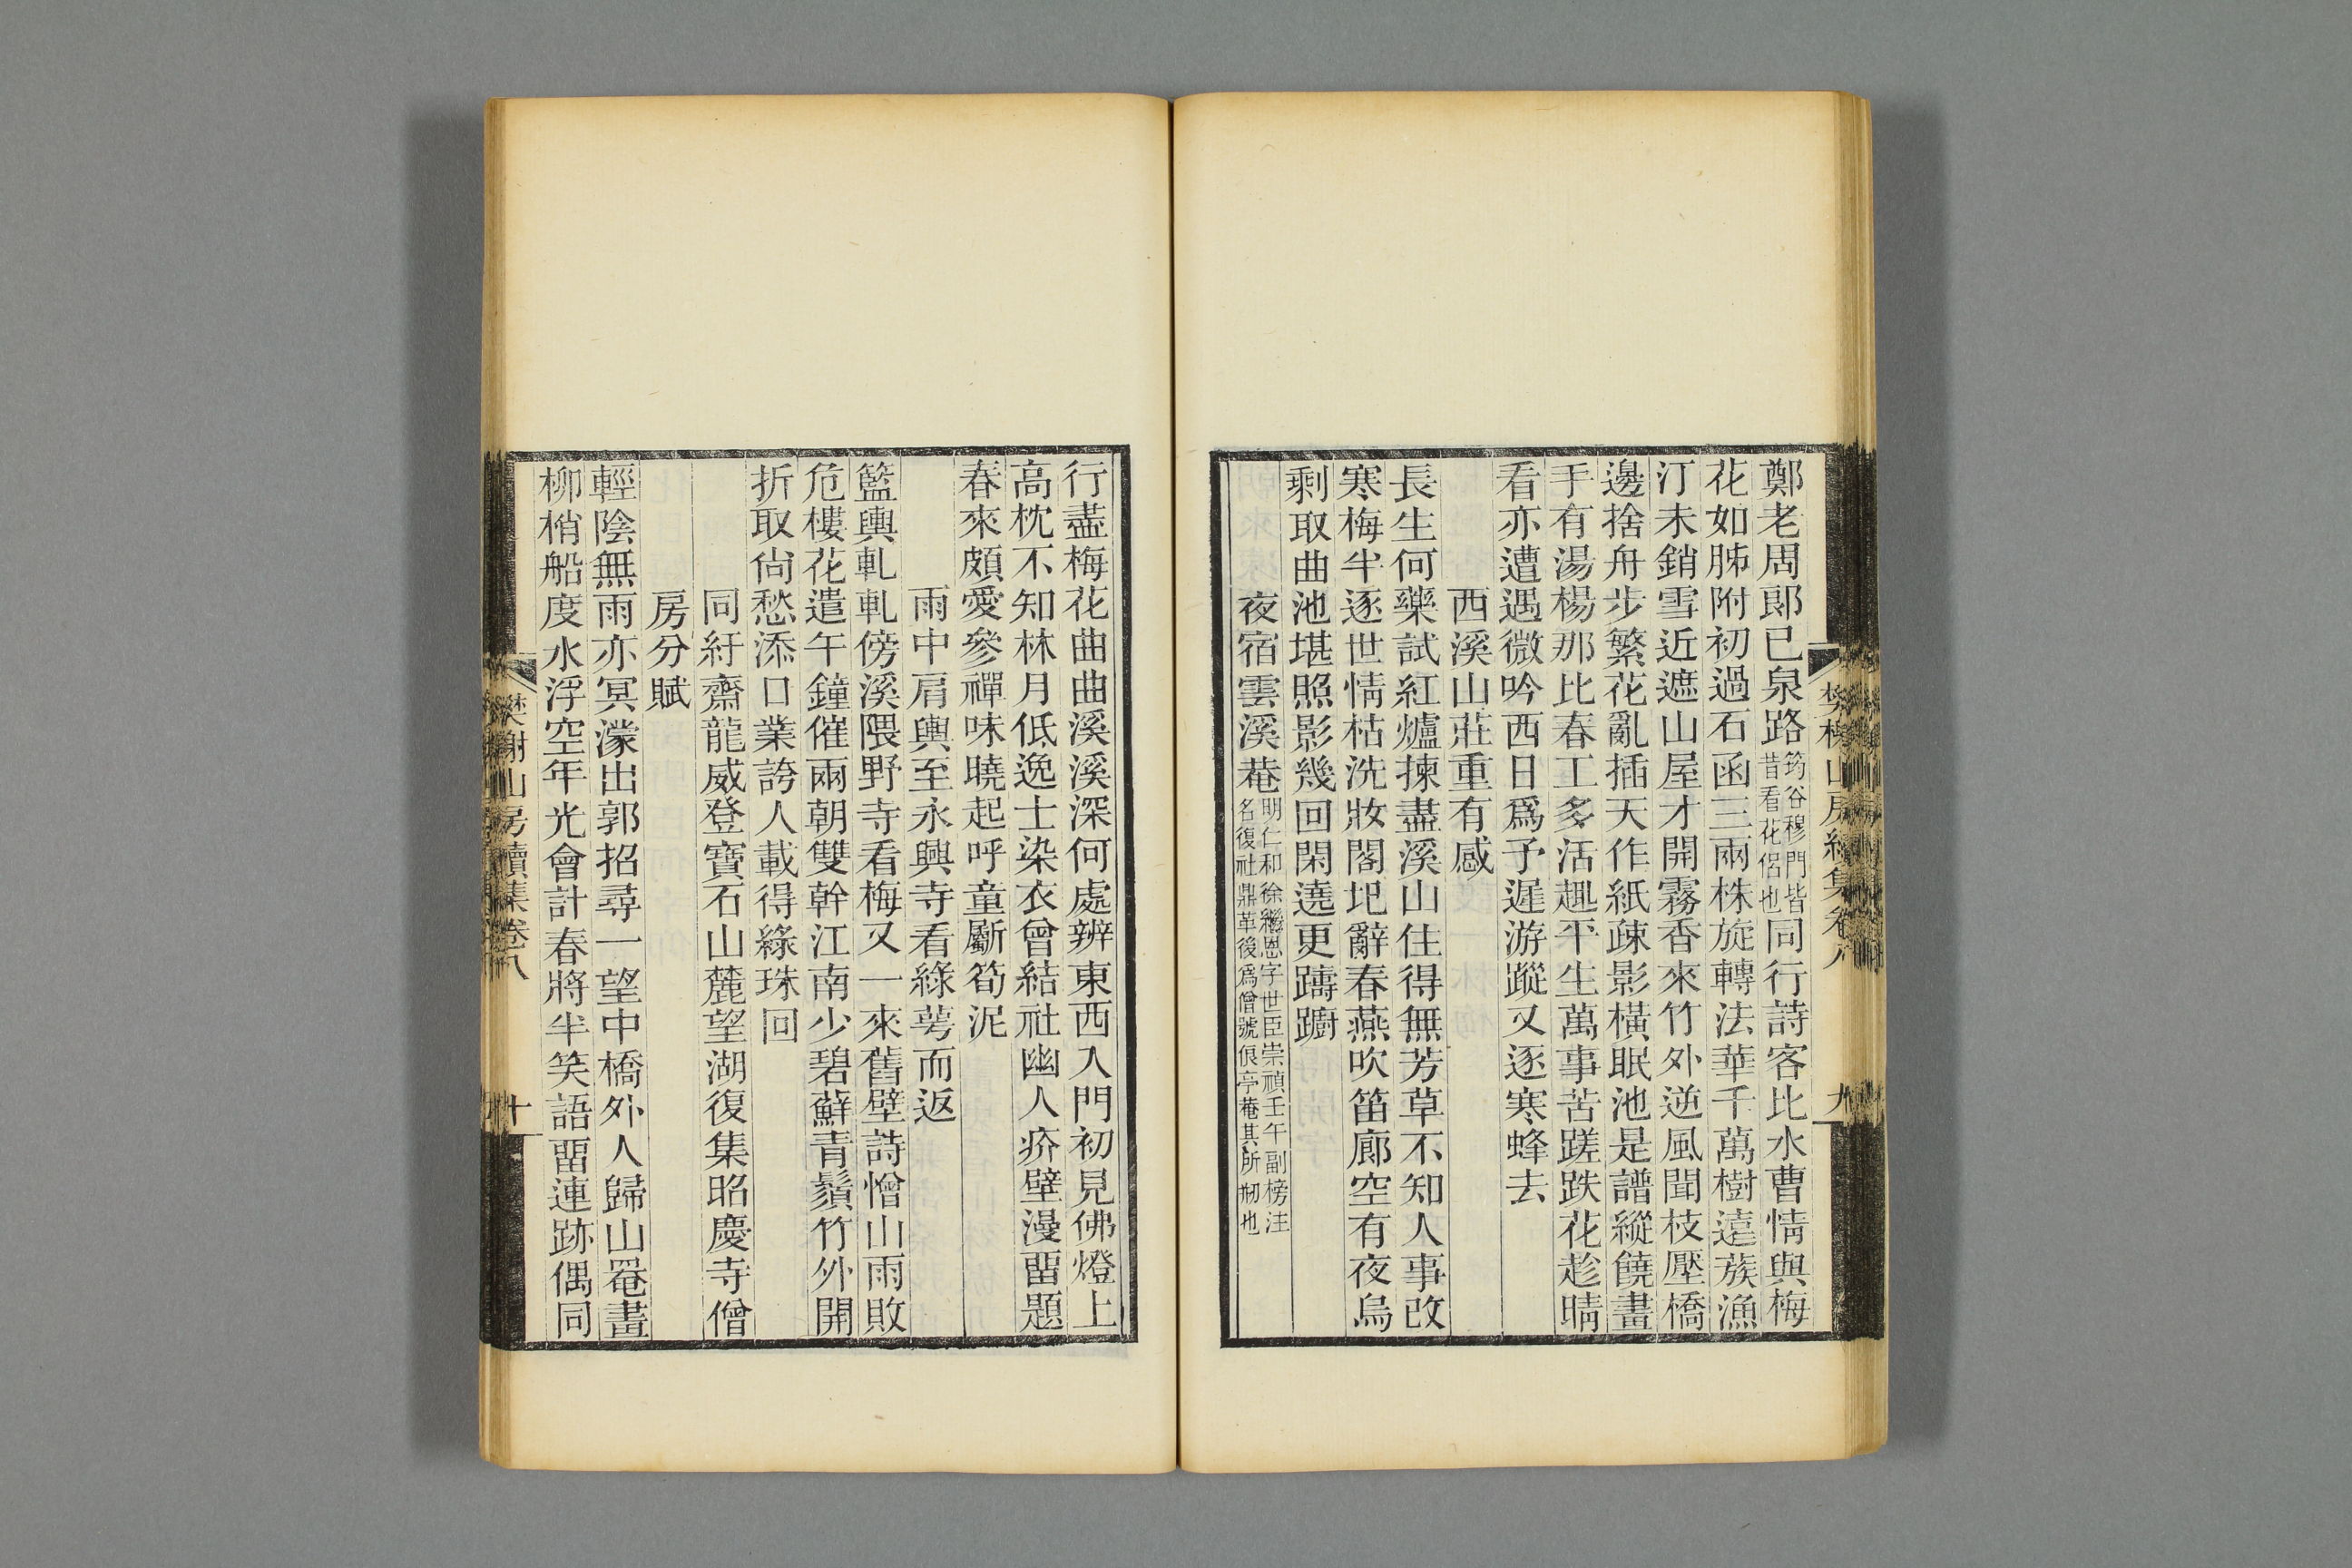 樊榭山房續集卷八
九
鄭老周郞已泉路筠谷穆門皆昔看花侶也同行詩客比水曹情與梅
花如胏附初過石函三兩株旋轉法華千萬樹遠蔟漁
汀未銷雪近遮山屋才開霧香來竹外逆風聞枝壓橋
邊捨舟步繁花亂插天作紙疎影橫眠池是譜縱饒畫
手有湯楊那比春工多活趣平生萬事苦蹉跌花趁晴
看亦遭遇微吟西日爲予遲游蹤又逐寒蜂去
西溪山莊重有感
長生何藥試紅爐揀盡溪山住得無芳草不知人事改
寒梅半逐世情枯洗妝閣圯辭春燕吹笛廊空有夜烏
剩取曲池堪照影幾回閑遶更躊躕
夜宿雲溪菴明仁和徐繼恩字世臣崇禎壬午副榜注名復社鼎革後爲僧號俍亭菴其所剏也
行盡梅花曲曲溪溪深何處辨東西入門初見佛燈上
高枕不知林月低逸士染衣曾結社幽人疥壁漫畱題
春來頗愛參禪味曉起呼童斸筍泥
雨中肩輿至永興寺看綠萼而返
籃輿軋軋傍溪隈野寺看梅又一來舊壁詩憎山雨敗
危樓花遣午鐘催兩朝雙幹江南少碧蘚青鬚竹外開
折取尙愁添口業誇人載得綠珠回
同紆齋龍威登寶石山麓望湖復集昭慶寺僧
房分賦
輕陰無雨亦冥濛出郭招尋一望中橋外人歸山罨畫
柳梢船度水浮空年光會計春將半笑語畱連跡偶同
樊榭山房續集卷八
十